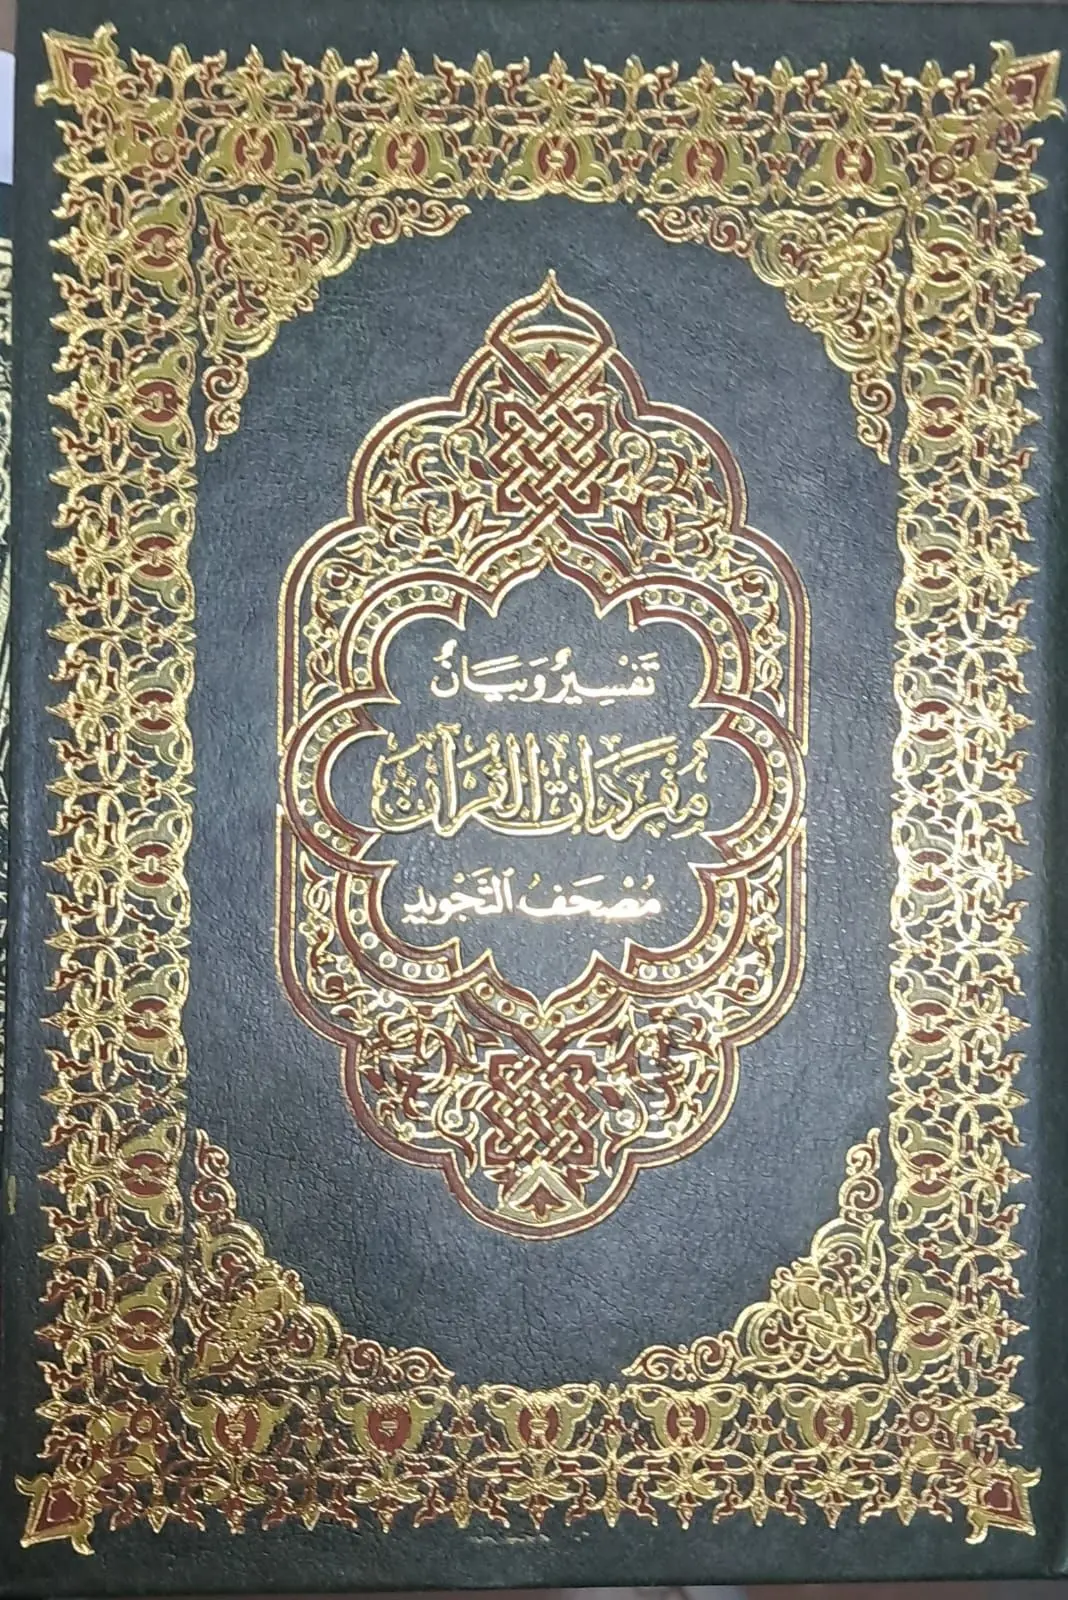 تَفْسِيرُ وَبَيَانُ
مُفْرَدَاتِ الْقُرْآنِ
مُصْحَفُ التَّجْوِيدِ